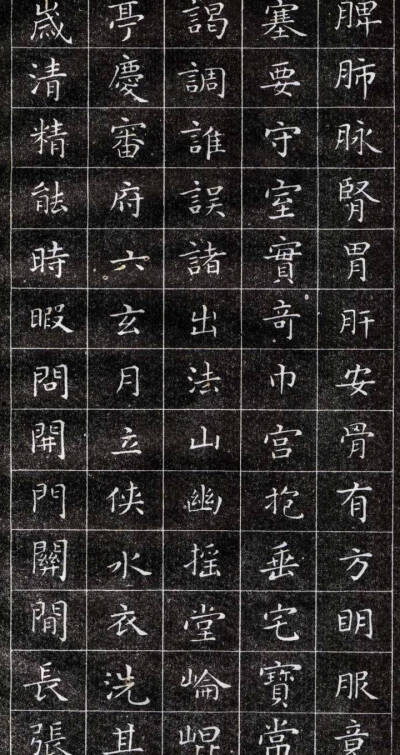 脾肺脉腎胃肝安骨有方眀服章
塞要守室實竒巾宫抱垂宅寶常
謁調誰誤諸出法山幽摇堂崘崐
亭慶審府六玄月立侠水衣洗其
嵗清精能時暇問開門關閒長張